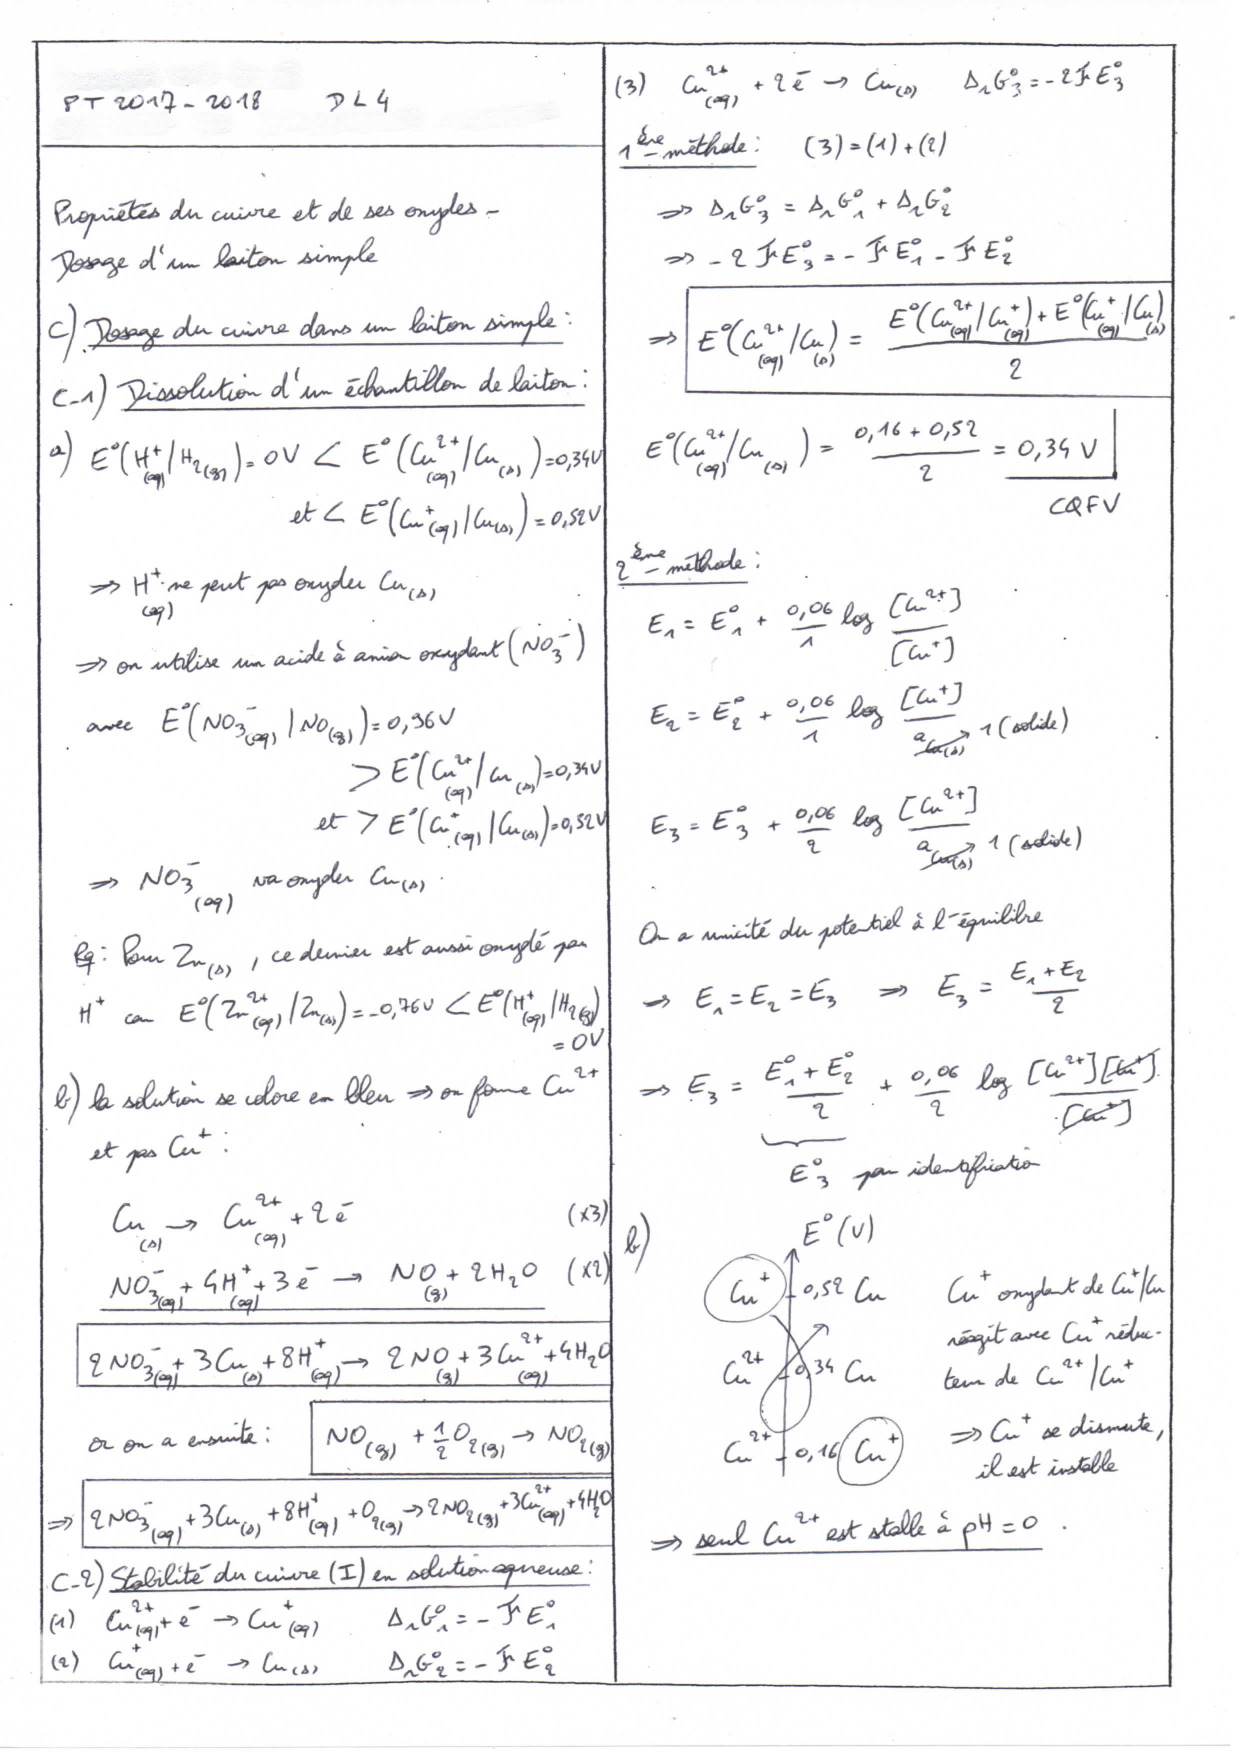 PT 2017-2018 DL4
Propriétés du cuivre et de ses oxydes -
Dosage d'un laiton simple
C) Dosage du cuivre dans un laiton simple :
C-1) Dissolution d'un échantillon de laiton :
a) E°(H⁺(aq)/H₂(g)) = 0V < E°(Cu²⁺(aq)/Cu(s)) = 0,34V
et < E°(Cu⁺(aq)/Cu(s)) = 0,52V
⇒ H⁺(aq) ne peut pas oxyder Cu(s)
⇒ on utilise un acide à anion oxydant (NO₃⁻)
avec E°(NO₃⁻(aq)/NO(g)) = 0,96V
> E°(Cu²⁺(aq)/Cu(s)) = 0,34V
et > E°(Cu⁺(aq)/Cu(s)) = 0,52V
⇒ NO₃⁻(aq) va oxyder Cu(s).
Rq : Pour Zn(s), ce dernier est aussi oxydé par
H⁺ car E°(Zn²⁺(aq)/Zn(s)) = -0,76V < E°(H⁺(aq)/H₂(g))
= 0V
b) la solution se colore en bleu ⇒ on forme Cu²⁺
et pas Cu⁺ :
Cu(s) → Cu²⁺(aq) + 2e⁻ (x3)
NO₃⁻(aq) + 4H⁺(aq) + 3e⁻ → NO(g) + 2H₂O (x2)
2NO₃⁻(aq) + 3Cu(s) + 8H⁺(aq) → 2NO(g) + 3Cu²⁺(aq) + 4H₂O
or on a ensuite : NO(g) + 1/2 O₂(g) → NO₂(g)
⇒ 2NO₃⁻(aq) + 3Cu(s) + 8H⁺(aq) + O₂(g) → 2NO₂(g) + 3Cu²⁺(aq) + 4H₂O
C-2) Stabilité du cuivre (I) en solution aqueuse :
(1) Cu²⁺(aq) + e⁻ → Cu⁺(aq) ΔrG°₁ = -F E°₁
(2) Cu⁺(aq) + e⁻ → Cu(s) ΔrG°₂ = -F E°₂
(3) Cu²⁺(aq) + 2e⁻ → Cu(s) ΔrG°₃ = -2F E°₃
1ère méthode : (3) = (1) + (2)
⇒ ΔrG°₃ = ΔrG°₁ + ΔrG°₂
⇒ -2F E°₃ = -F E°₁ - F E°₂
⇒ E°(Cu²⁺(aq)/Cu(s)) = (E°(Cu²⁺(aq)/Cu⁺(aq)) + E°(Cu⁺(aq)/Cu(s)))/2
E°(Cu²⁺(aq)/Cu(s)) = (0,16 + 0,52)/2 = 0,34 V
CQFV
2ème méthode :
E₁ = E°₁ + 0,06/1 log [Cu²⁺]/[Cu⁺]
E₂ = E°₂ + 0,06/1 log [Cu⁺]/a Cu(s) → 1 (solide)
E₃ = E°₃ + 0,06/2 log [Cu²⁺]/a Cu(s) → 1 (solide)
On a unicité du potentiel à l'équilibre
⇒ E₁ = E₂ = E₃ ⇒ E₃ = (E₁ + E₂)/2
⇒ E₃ = (E°₁ + E°₂)/2 + 0,06/2 log [Cu²⁺][Cu⁺]/[Cu⁺]
E°₃ par identification
b) E°(V)
Cu⁺ 0,52 Cu
Cu²⁺ 0,34 Cu
Cu²⁺ 0,16 Cu⁺
Cu⁺ oxydant de Cu⁺/Cu
réagit avec Cu⁺ réduc-
teur de Cu²⁺/Cu⁺
⇒ Cu⁺ se dismute,
il est instable
⇒ seul Cu²⁺ est stable à pH = 0.